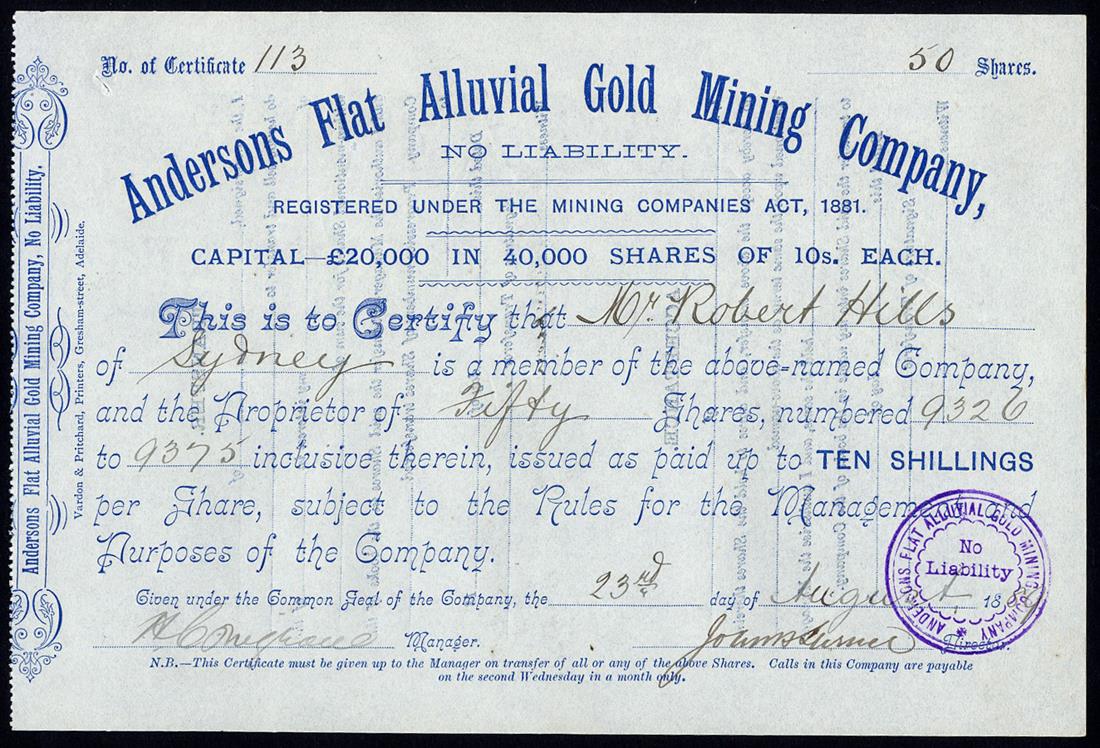 No. of Certificate 113
50 Shares.
Andersons Flat Alluvial Gold Mining Company,
NO LIABILITY.
REGISTERED UNDER THE MINING COMPANIES ACT, 1881.
CAPITAL—£20,000 IN 40,000 SHARES OF 10s. EACH.
This is to Certify that Mr. Robert Hills
of Sydney is a member of the above-named Company,
and the Proprietor of Fifty Shares, numbered 9326
to 9375 inclusive therein, issued as paid up to TEN SHILLINGS
per Share, subject to the Rules for the Management and
Purposes of the Company.
Given under the Common Seal of the Company, the 23rd day of August 18
Manager.
Director.
N.B.—This Certificate must be given up to the Manager on transfer of all or any of the above Shares. Calls in this Company are payable
on the second Wednesday in a month only.
Andersons Flat Alluvial Gold Mining Company, No Liability.
Vardon & Pritchard, Printers, Gresham-street, Adelaide.
ANDERSONS FLAT ALLUVIAL GOLD MINING COMPANY
No
Liability